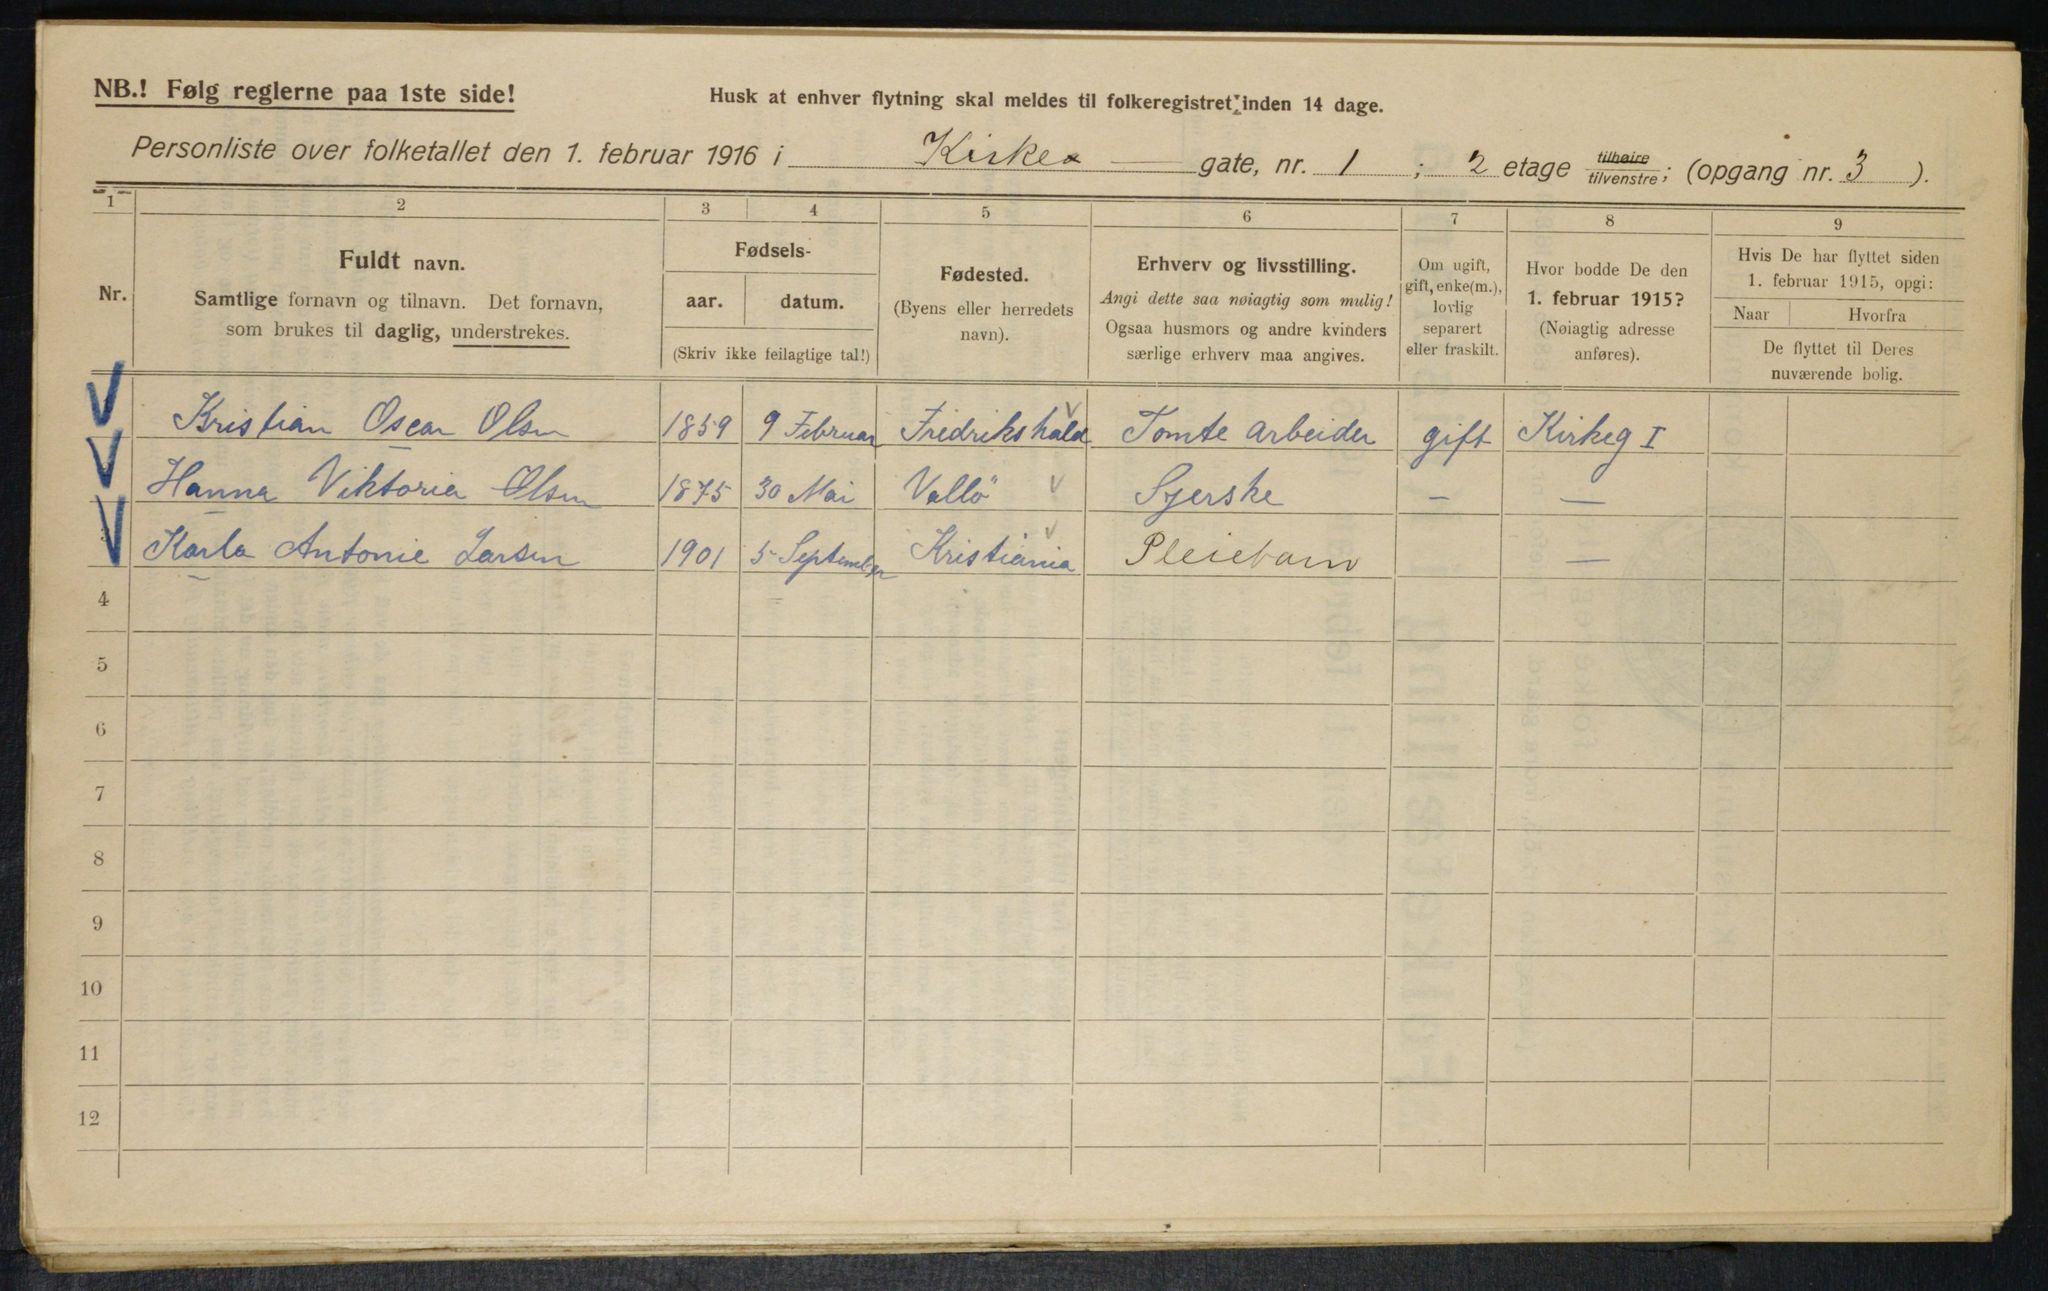 NB.! Følg reglerne paa 1ste side!
Husk at enhver flytning skal meldes til folkeregistret inden 14 dage.
Personliste over folketallet den 1. februar 1916 i Kirke gate, nr. 1 ; 2 etage tilhøire tilvenstre; (opgang nr. 3 ).
1 2 3 4 5 6 7 8 9
Nr.
Fuldt navn.
Samtlige fornavn og tilnavn. Det fornavn,
som brukes til daglig, understrekes.
Fødsels-
aar. datum.
(Skriv ikke feilagtige tal!)
Fødested.
(Byens eller herredets
navn).
Erhverv og livsstilling.
Angi dette saa nøiagtig som mulig!
Ogsaa husmors og andre kvinders
særlige erhverv maa angives.
Om ugift,
gift, enke(m.),
lovlig
separert
eller fraskilt.
Hvor bodde De den
1. februar 1915?
(Nøiagtig adresse
anføres).
Hvis De har flyttet siden
1. februar 1915, opgi:
Naar Hvorfra
De flyttet til Deres
nuværende bolig.
Kristian Oscar Olsen 1859 9 Februar Fredrikshald Tomte arbeider gift Kirkeg I
Hanna Viktoria Olsen 1875 30 Mai Vallö Syerske — —
Karla Antonie Larsen 1901 5 September Kristiania Pleiebarn —
4
5
6
7
8
9
10
11
12